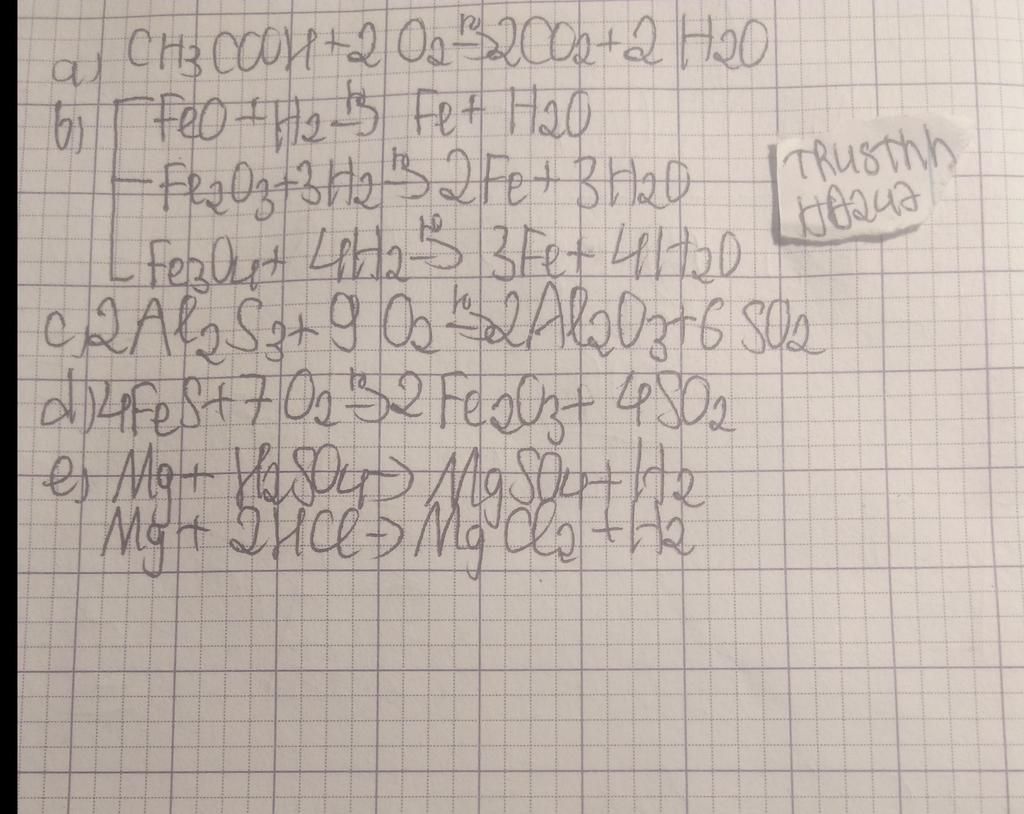 a) CH3COOH + 2 O2 t°→ 2CO2 + 2 H2O
b) FeO + H2 t°→ Fe + H2O
Fe2O3 + 3H2 t°→ 2Fe + 3H2O
Fe3O4 + 4H2 t°→ 3Fe + 4H2O
c) 2Al2S3 + 9 O2 t°→ 2Al2O3 + 6 SO2
d) 4FeS + 7 O2 t°→ 2 Fe2O3 + 4SO2
e) Mg + H2SO4 → MgSO4 + H2
Mg + 2HCl → MgCl2 + H2